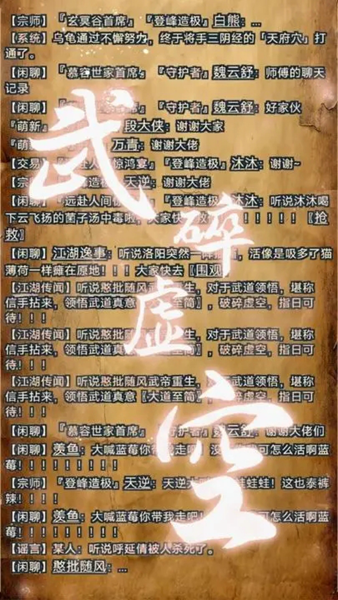 【宗师】『玄冥谷首席』『登峰造极』白熊：…
【系统】乌龟通过不懈努力，终于将手三阴经的「天府穴」打通了。
【闲聊】『慕容世家首席』『守护者』魏云舒：师傅的聊天记录
【闲聊】『守护者』魏云舒：好家伙
『萌新』段大侠：谢谢大家
『萌 万青：谢谢大佬
【交易 人 惊鸿宴』『登峰造极』沐沐：谢谢~
【宗 天逆：谢谢大佬
【闲聊】 远赴人间 登峰造极』沐沐：听说沐沐喝下云飞扬的菌子汤中毒 大家快 ！！！！！！〖抢救〗
【闲聊】江湖逸事：听说洛阳突然一 ，活像是吸多了猫薄荷一样瘫在原地！！！大家快去〖围观
【江湖传闻】听说憨批随风武帝重生，对于武道领悟，堪称信手拈来，领悟武道真意 至简】，破碎虚空，指日可待！！！
【江湖传闻】听说憨批随 ，对于武道领悟，堪称信手拈来，领悟武道 ，破碎虚空，指日可待！！！
【江湖传闻】听说憨批随风武帝重生，对于武道领悟，堪称信手拈来，领悟武道真意【大道至简】，破碎虚空，指日可待！！！
【闲聊】『慕容世家首席』 守护者』魏云舒：谢谢大佬们
【闲聊】羡鱼：大喊蓝莓你带我走吧！没 可怎么活啊蓝莓！！！！！！！！！
【宗师】『登峰造极』天逆：天逆大 哇蛙蛙！这也泰裤辣！！！！
【闲聊】羡鱼：大喊蓝莓你带我走吧！ 可怎么活啊蓝莓！！！！！！！！！
【谣言】某人：听说呼延倩被人杀死了。
【闲聊】憨批随风：…
武碎虚空